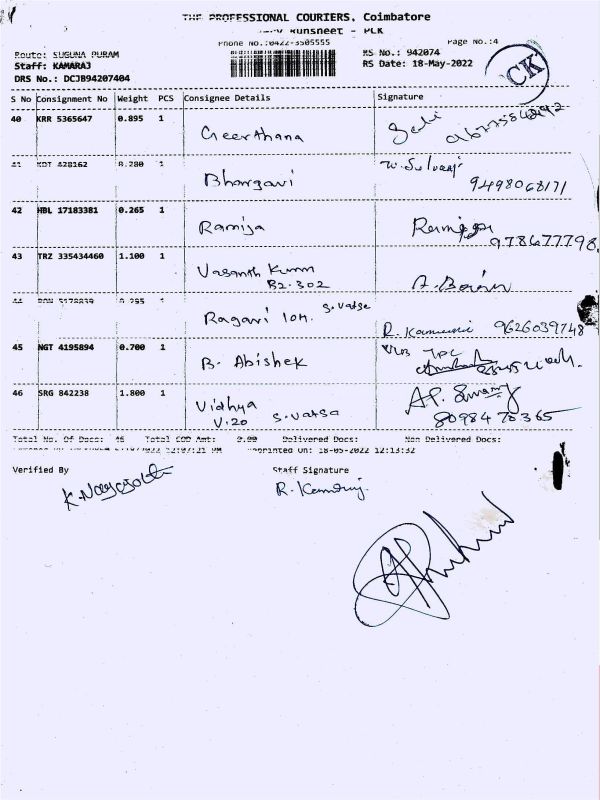 THE PROFESSIONAL COURIERS. Coimbatore
Runsheet - PLK
Phone No.:0422-3505555 Page No.:4
Route: SUGUNA PURAM MS No.: 942074
Staff: KAMARAJ RS Date: 18-May-2022
DRS No.: DCJB94207404
CK
S No Consignment No Weight PCS Consignee Details Signature
40 KRR 5365647 0.895 1 Geerthana
41 KDT 428162 0.280 1 Bhargavi
9498068171
42 HBL 17183381 0.265 1 Ramija Ramija
978677798
43 TRZ 335434460 1.100 1 Vasanth Kumar
B2-302
44 5178839 0.295 1 Ragavi 10H. S.Vatsa
R. Kamaraj 9626039748
45 NGT 4195894 0.700 1 B. Abishek
46 SRG 842238 1.800 1 Vidhya
V.20 S.Vatsa
8098470365
Total No. Of Docs: 46 Total COD Amt: 0.00 Delivered Docs: Non Delivered Docs:
Reprinted On: 18-05-2022 12:13:32
Verified By Staff Signature
R. Kamaraj